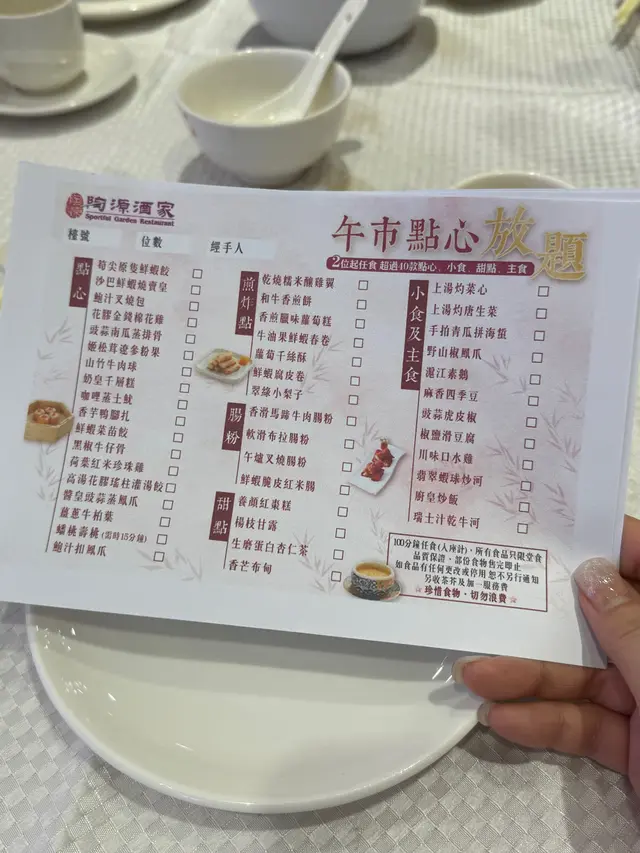 陶源酒家
Sportful Garden Restaurant
午市點心放題
2位起任食 超過40款點心﹑小食﹑甜點﹑主食
檯號
位數
經手人
點心
筍尖原隻鮮蝦餃
沙巴鮮蝦燒賣皇
鮑汁叉燒包
花膠金錢棉花雞
豉蒜南瓜蒸排骨
姬松茸遼參粉果
山竹牛肉球
奶皇千層糕
咖喱蒸土魷
香芋鴨腳扎
鮮蝦菜苗餃
黑椒牛仔骨
荷葉紅米珍珠雞
高湯花膠瑤柱灌湯餃
醬皇豉蒜蒸鳳爪
薑蔥牛柏葉
蟠桃壽桃(需時15分鐘)
鮑汁扣鳳爪
煎炸點
乾燒糯米釀雞翼
和牛香煎餅
香煎臘味蘿蔔糕
牛油果鮮蝦春卷
蘿蔔千絲酥
鮮蝦腐皮卷
翠綠小梨子
腸粉
香滑馬蹄牛肉腸粉
軟滑布拉腸粉
午爐叉燒腸粉
鮮蝦脆皮紅米腸
甜點
養顏紅棗糕
楊枝甘露
生磨蛋白杏仁茶
香芒布甸
小食及主食
上湯灼菜心
上湯灼唐生菜
手拍青瓜拼海蜇
野山椒鳳爪
滬江素鵝
麻香四季豆
豉蒜虎皮椒
椒鹽滑豆腐
川味口水雞
翡翠蝦球炒河
廚皇炒飯
瑞士汁乾牛河
100分鐘任食(入座計)﹐所有食品只限堂食
品質保證﹐部份食物售完即止
如食品有任何更改或停用 恕不另行通知
另收茶芥及加一服務費
☆珍惜食物﹐切勿浪費☆